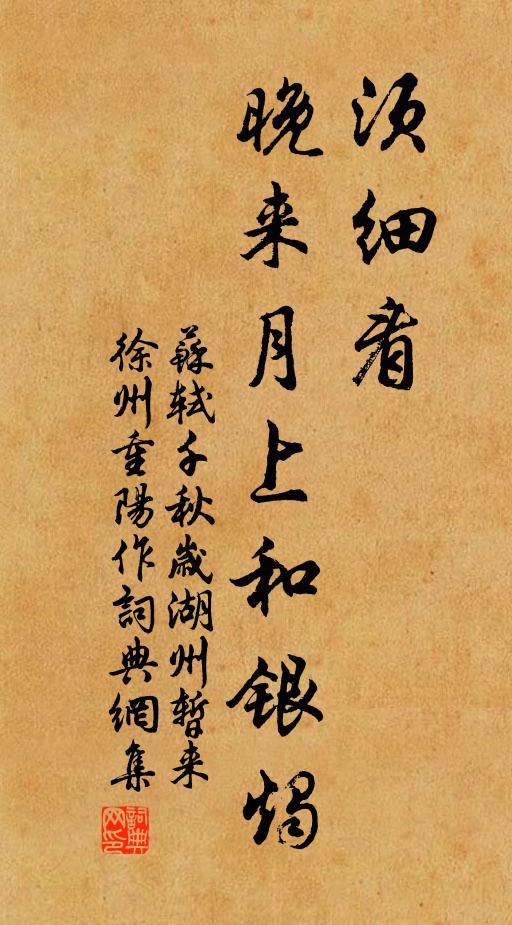 须细看
晚来月上和银烛
苏轼千秋岁湖州暂来
徐州重陽作詞典網集
詞典网印